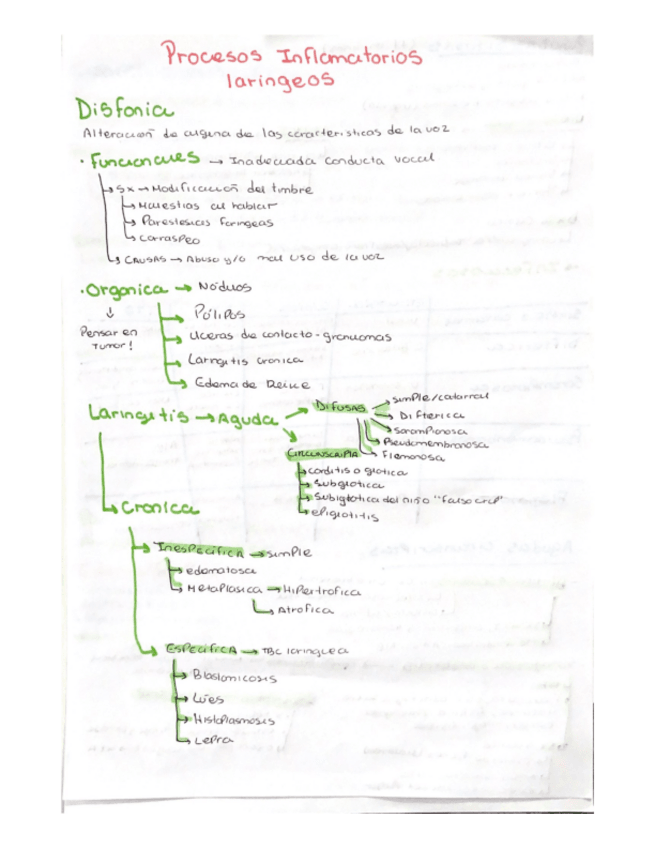 Procesos Inflamatorios
laringeos
Disfonia
Alteración de alguna de las caracteristicas de la voz
· Funcionales → Inadecuada conducta vocal
↳ Sx → Modificación del timbre
↳ Molestias al hablar
↳ Parestesias faringeas
↳ Carraspeo
↳ CAUSAS → Abuso y/o mal uso de la voz
· Organica → Nódulos
↓
Pensar en
Tumor!
Pólipos
Ulceras de contacto - granulomas
Laringitis cronica
Edema de Reinke
Laringitis → Aguda
DIFUSAS
simple/catarral
Difterica
Sarampionosa
Pseudomembranosa
Flemonosa
CIRCUNSCRIPTA
corditis o glotica
Subglotica
Subglotica del niño "falso crup"
epiglotitis
↳ Cronica
→ Inespecifica → simple
→ edematosa
↳ Metaplasica → Hipertrofica
↳ Atrofica
↳ ESPECIFICA → TBC laringea
→ Blastomicosis
→ Lúes
→ Histoplasmosis
↳ Lepra